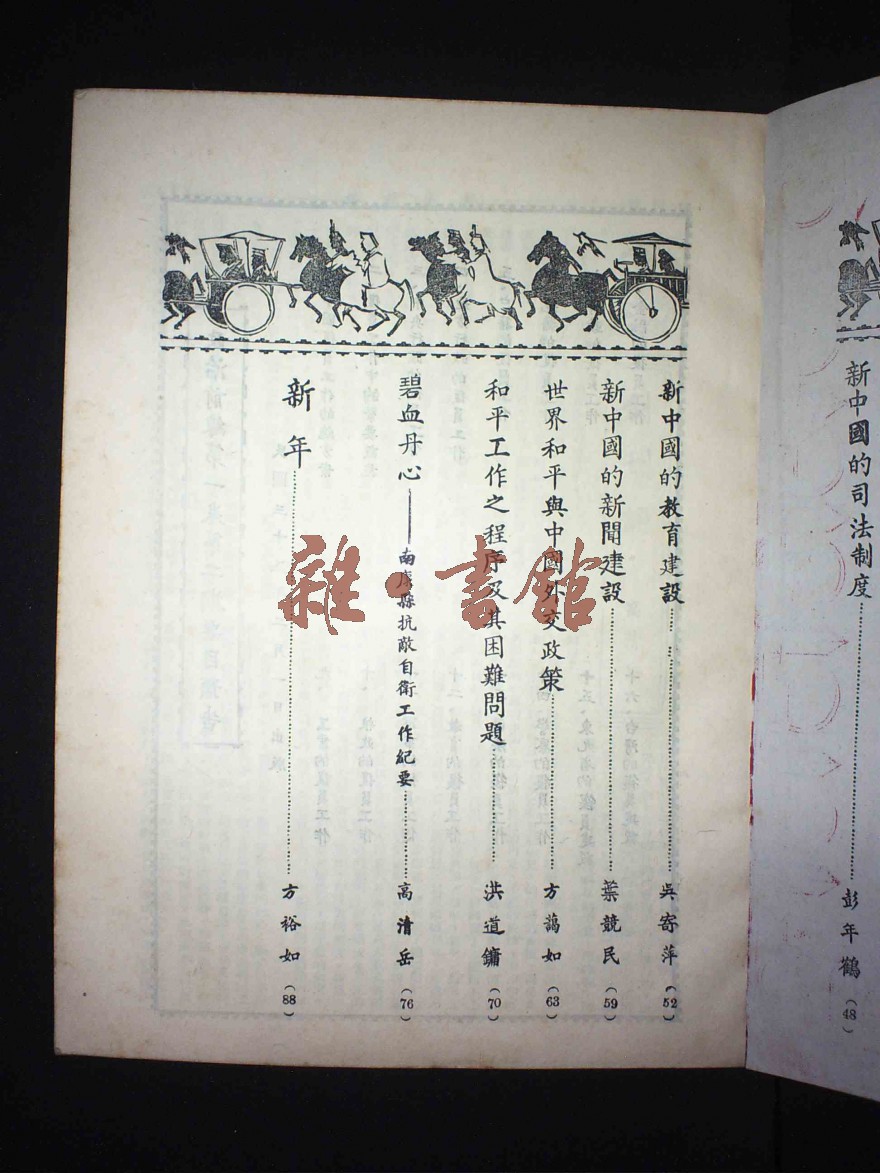 新中國的司法制度……彭年鶴(48)
新中國的教育建設……吳寄萍(52)
新中國的新聞建設……葉競民(59)
世界和平與中國外交政策……方藹如(63)
和平工作之程序及其困難問題……洪道鏞(70)
碧血丹心——南康縣抗敵自衛工作紀要……高清岳(76)
新年……方裕如(88)
雜·書館